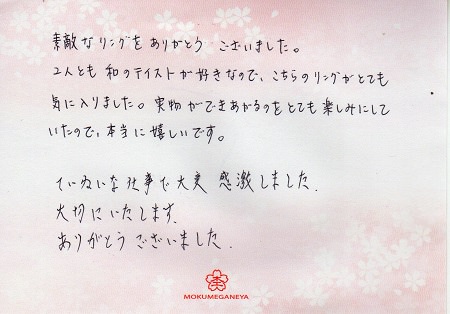 素敵なリングをありがとうございました。
2人とも和のテイストが好きなので、こちらのリングがとても
気に入りました。実物ができあがるのをとても楽しみにして
いたので、本当に嬉しいです。
ていねいな仕事で大変感激しました。
大切にいたします。
ありがとうございました。
MOKUMEGANEYA